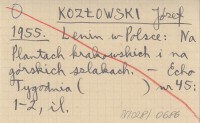 O KOZŁOWSKI Józef
1955. Lenin w Polsce: Na
Plantach krakowskich i na
górskich szlakach. - Echo
Tygodnia ( ) nr 45:
1-2, il.